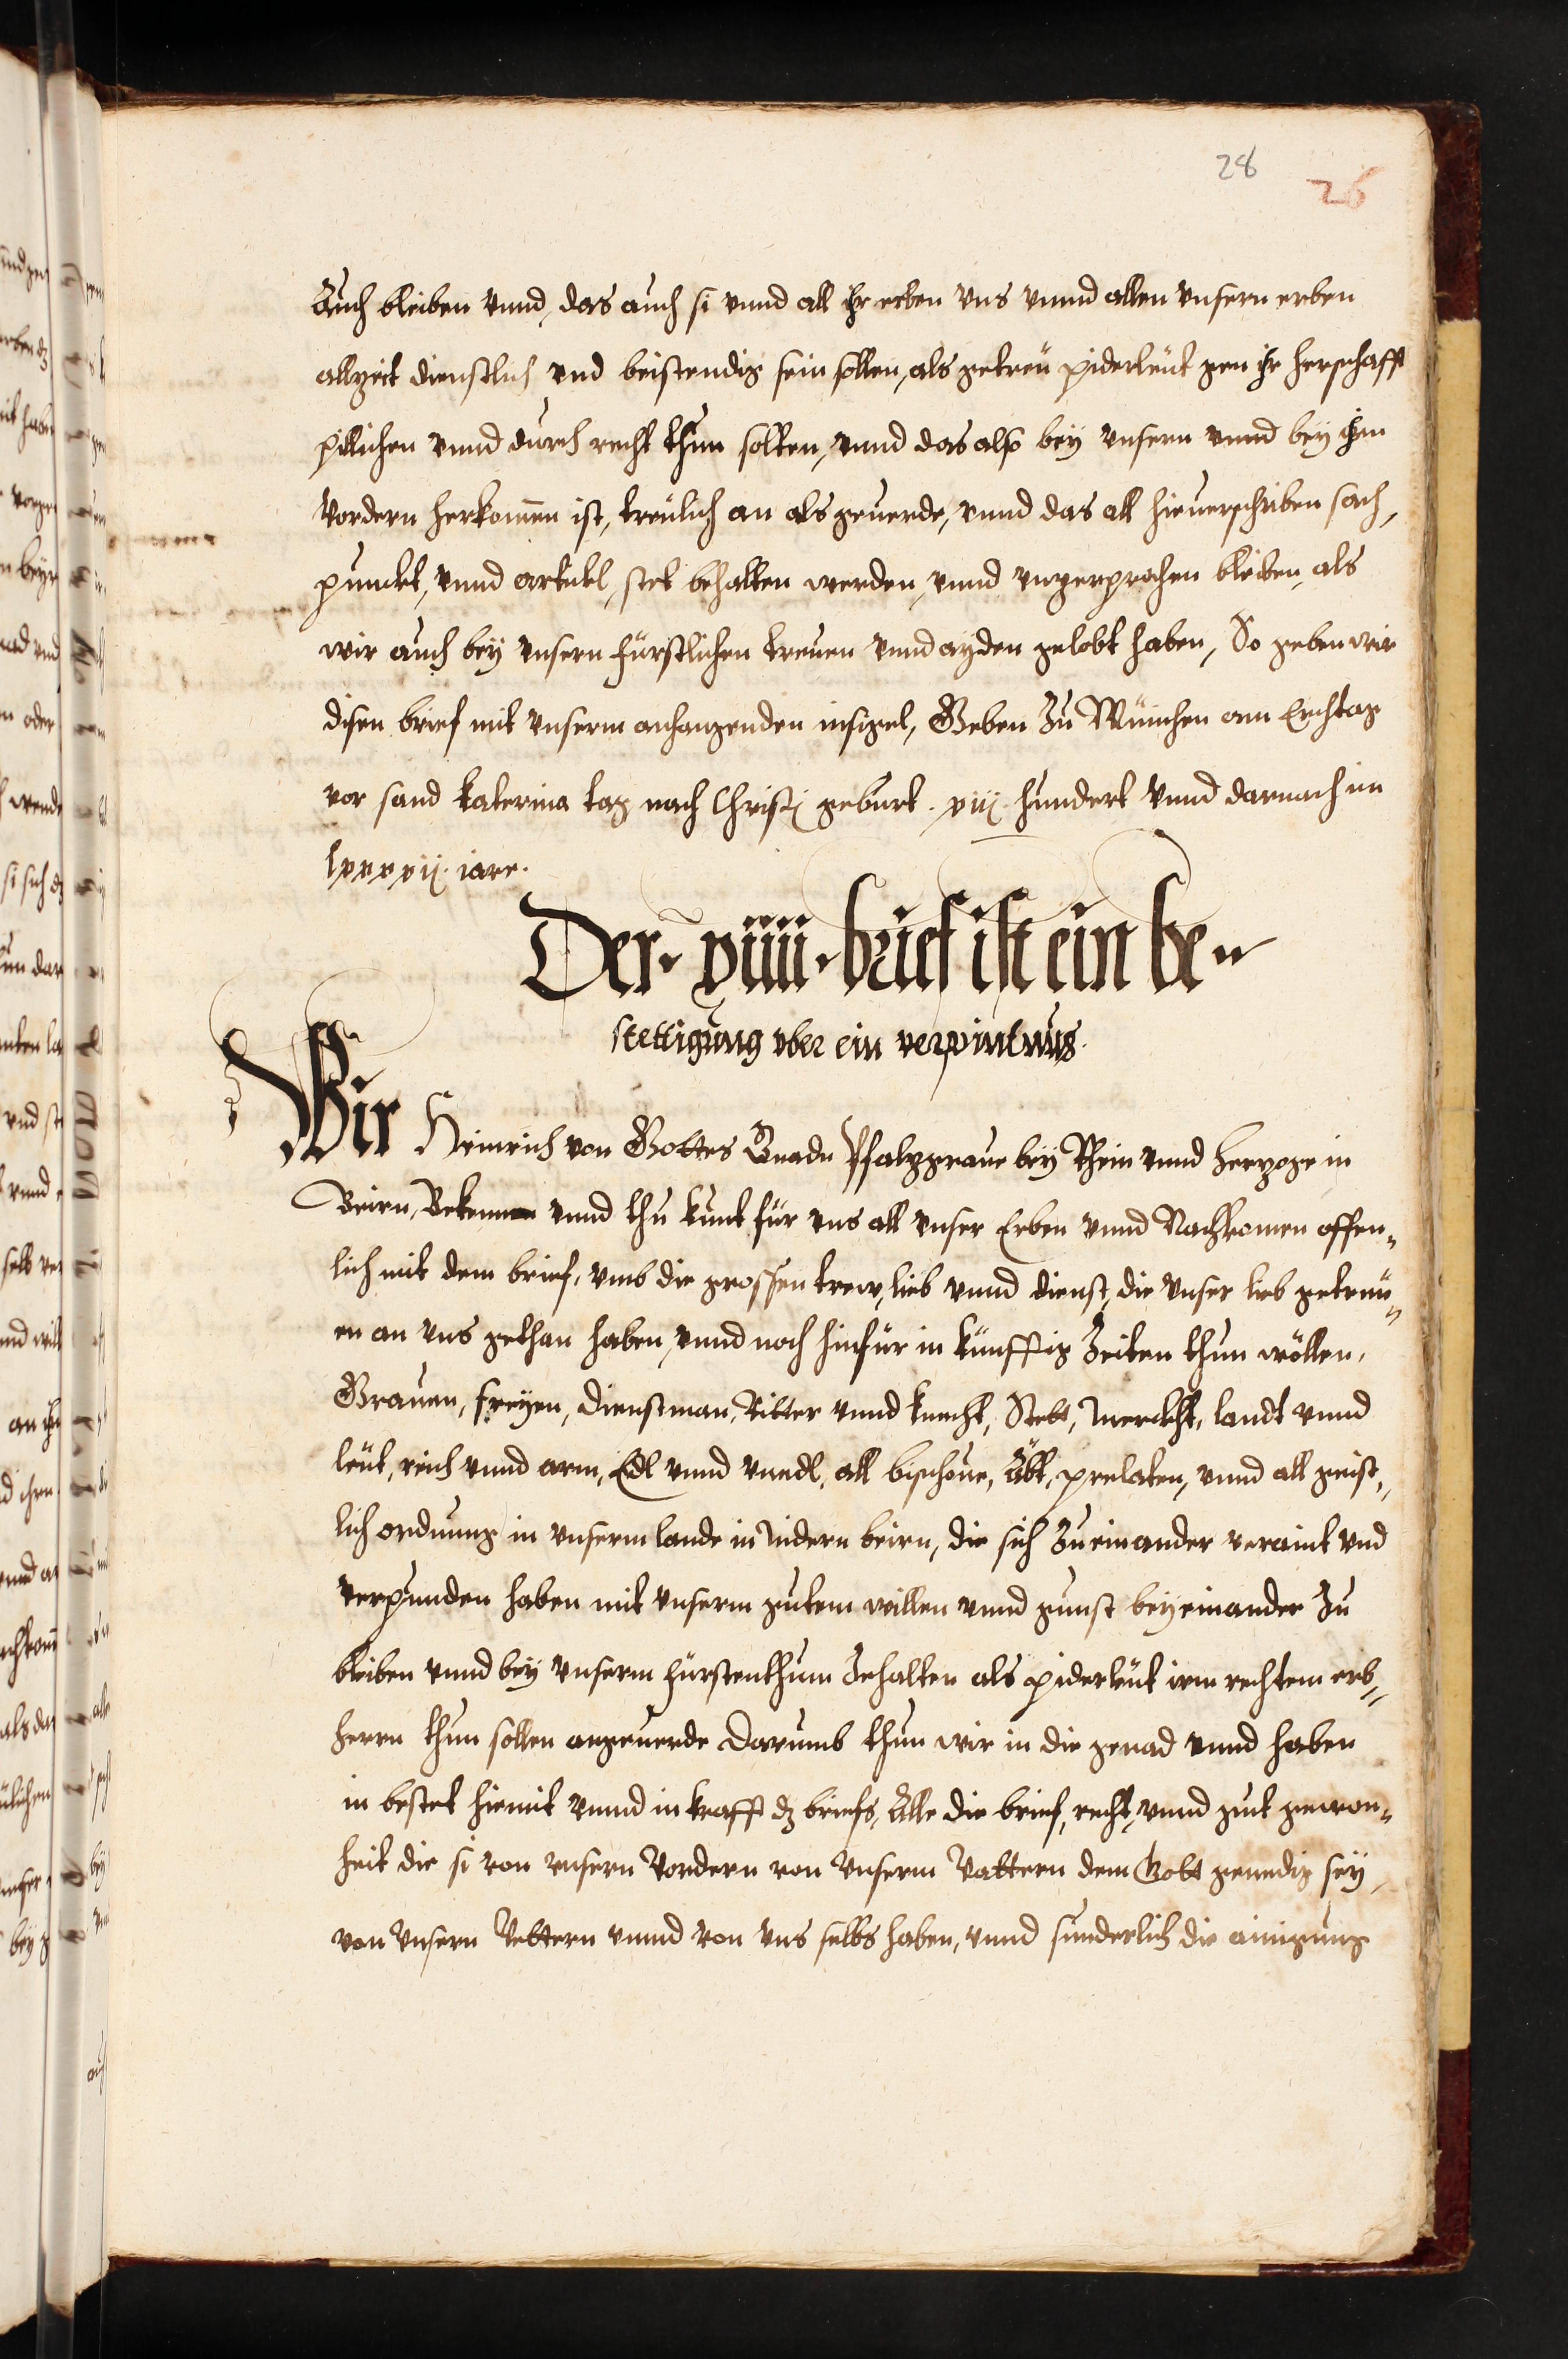 28
26
Auch bleiben vnnd, das auch si vnnd all ihr erben vns vnnd allen vnsern erben
allzeit dienstlich vnd beistendig sein sollen, als getreü piderleüt gen ihr herschafft
pillichen vnnd durch recht thun solten, vnnd das also bey vnsern vnnd bey ihrn
vordern herkomen ist, treülich an als geuerde, vnnd das all hieuerschriben sach,
punckt, vnnd artickl, stet behalten werden, vnnd vnzerprochen bleiben, als
wir auch bey vnsern fürstlichen treuen vnnd ayden gelobt haben, So geben wir
disen brief mit vnserm anhangenden insigel, Geben Zu München am Erchtag
vor sand katerina tag nach Christi geburt. xiij. hundert vnnd darnach im
lxxxxij. iare.
Der. xiiii. brief ist ein be-
stettigung vber ein verpintnus.
Wir Heinrich von Gottes Gnadn Pfalzgraue bey Rhein vnnd Herzoge in
Beirn, Bekennen vnnd thu kunt für vns all vnser Erben vnnd Nachkomen offen-
lich mit dem brief, vmb die grossen trew, lieb vnnd dienst, die vnser lieb getreü-
en an vns gethan haben, vnnd noch hinfür in künfftig Zeiten thun wöllen,
Grauen, freyen, dienstman, Ritter vnnd knecht, Stett, Merckht, landt vnnd
leüt, reich vnnd arm, Edl vnnd vnedl, all bischoue, Äbt, prelaten, vnnd all geist-
lich ordnung in vnserm lande in Nidern beirn, die sich Zu einander veraint vnd
verpunden haben mit vnserm gutem willen vnnd gunst bey einander Zu
bleiben vnnd bey vnserm fürstenthum Zehalten als piderleüt irm rechtem erb-
herrn thun sollen angeuerde Darumb thun wir in die genad vnnd haben
in bestet hiemit vnnd in krafft dz briefs, Alle die brief, recht, vnnd gut gewon-
heit die si von vnsern Vordern von vnserm Vattern dem Gott genedig sey,
von vnsern Vettern vnnd von vns selbs haben, vnnd sunderlich die ainigung